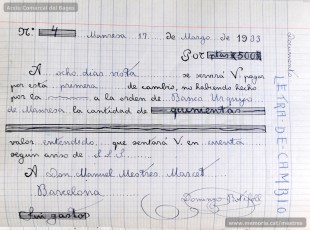 Arxiu Comarcal del Bages
Nº 4 Manresa 17 de Marzo de 1933
Por ptas 500
A ocho días vista se servirá V. pagar
por esta primera de cambio, no habiendo hecho
por la a la orden de Banco Urquijo
de Manresa la cantidad de quinientas
valor entendido, que sentará V. en cuenta
según aviso de S.S.S.
A Don Manuel Mestres
Barcelona
Sin gastos Domingo
Documento
LETRA-DE-CAMBIO
www.memoria.cat/mestres